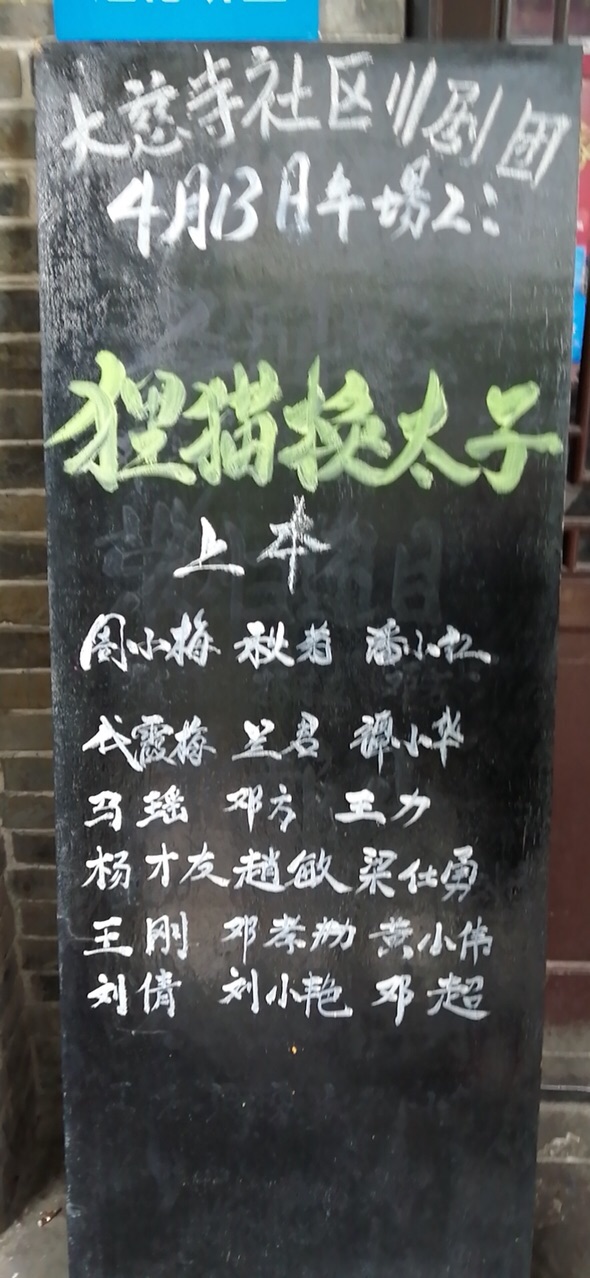 大慈寺社区川剧团
4月13日午場2:
狸猫换太子
上本
周小梅 秋菊 潘小红
代霞梅 兰君 谭小华
马瑶 邓方 王力
杨才友 趙敏 梁仕勇
王刚 邓孝 黄小伟
刘倩 刘小艳 邓超